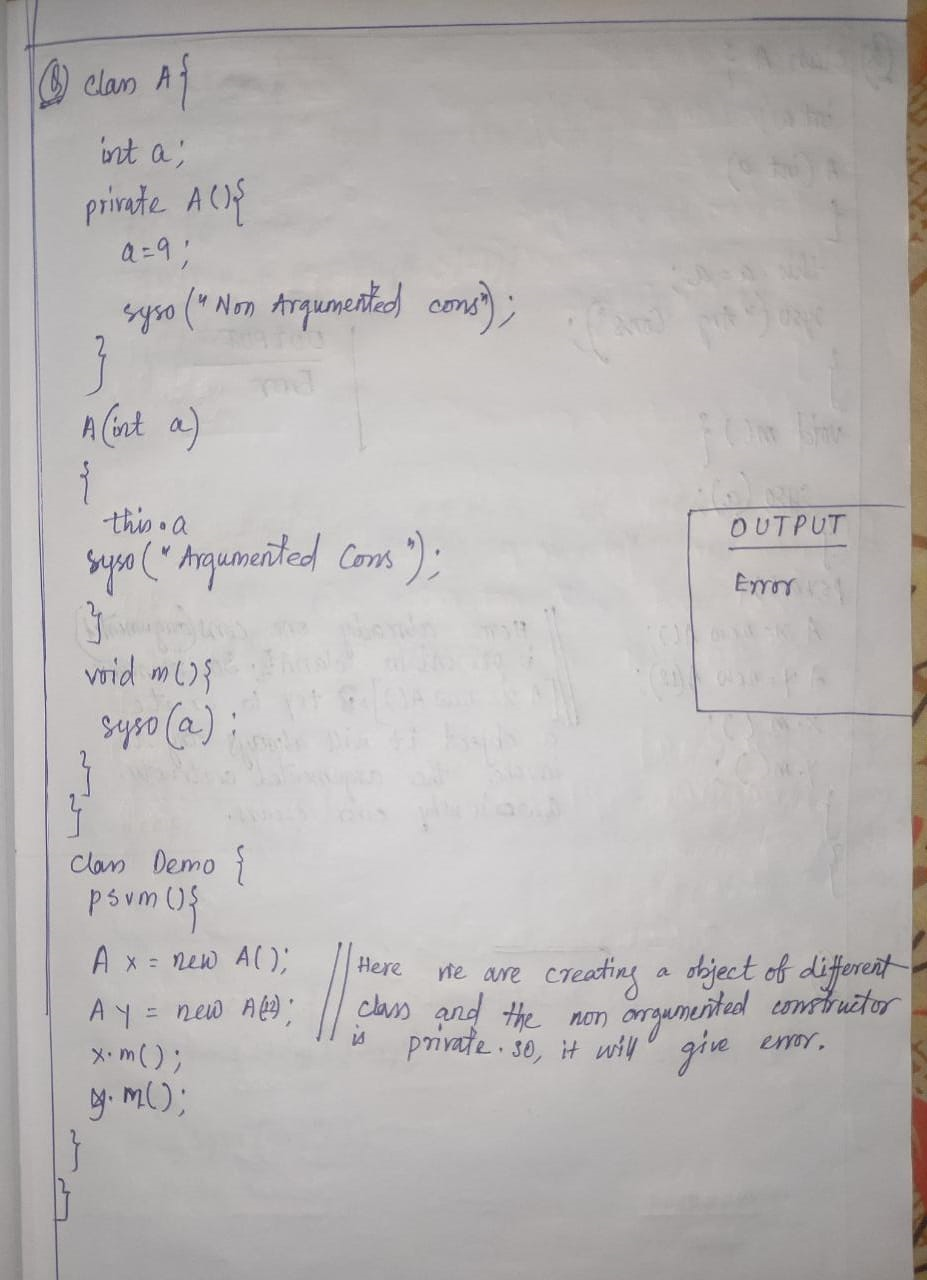 Q) class A{
int a;
private A(){
a=9;
syso("Non Argumented cons");
}
A(int a)
{
this.a
syso("Argumented Cons");
}
void m(){
syso(a);
}
}
OUTPUT
Error
class Demo {
psvm(){
A x = new A();
A y = new A(12);
x.m();
y.m();
// Here we are creating a object of different
class and the non argumented constructor
is private. so, it will give error.
}
}